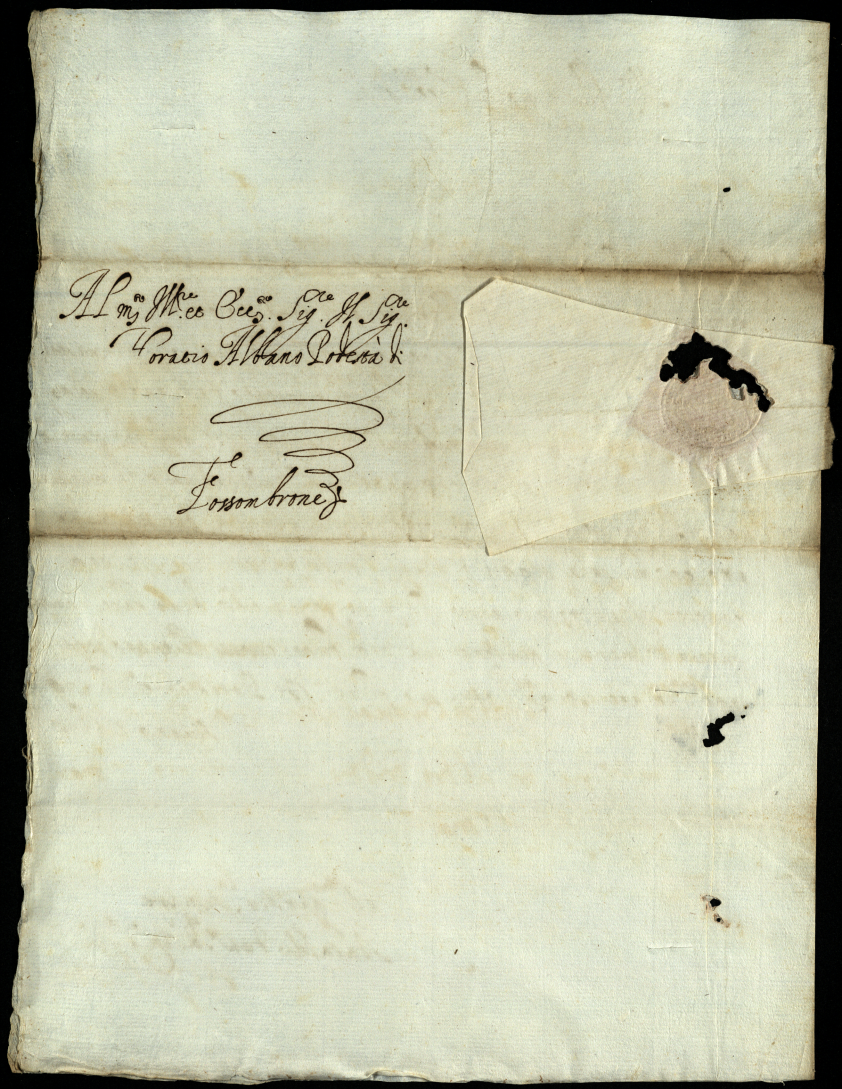 Al m.to Ill.re et Ecc.mo Sig.re Il Sig.re
Horatio Albano Podestà di
Fossombrone